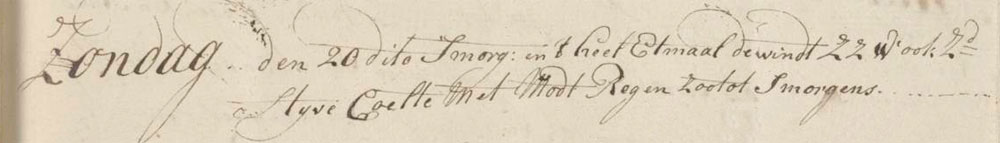 Zondag den 20 dito Smorg: in 't heel Etmaal de windt ZZ W: ook Zd
Styve Coelte Met Modt Regen zo tot Smorgens